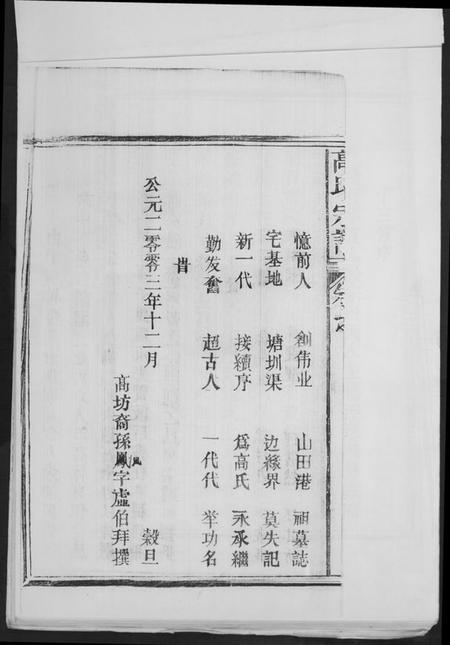 高氏宗譜
憶前人 創伟业 山田港 祖墓誌
宅基地 塘圳渠 边缘界 莫失記
新一代 接續序 爲高氏 永承繼
勤发奮 超古人 一代代 举功名
旹
公元二零零三年十二月 穀旦
高坊裔孫鳳字虛伯拜撰
凤